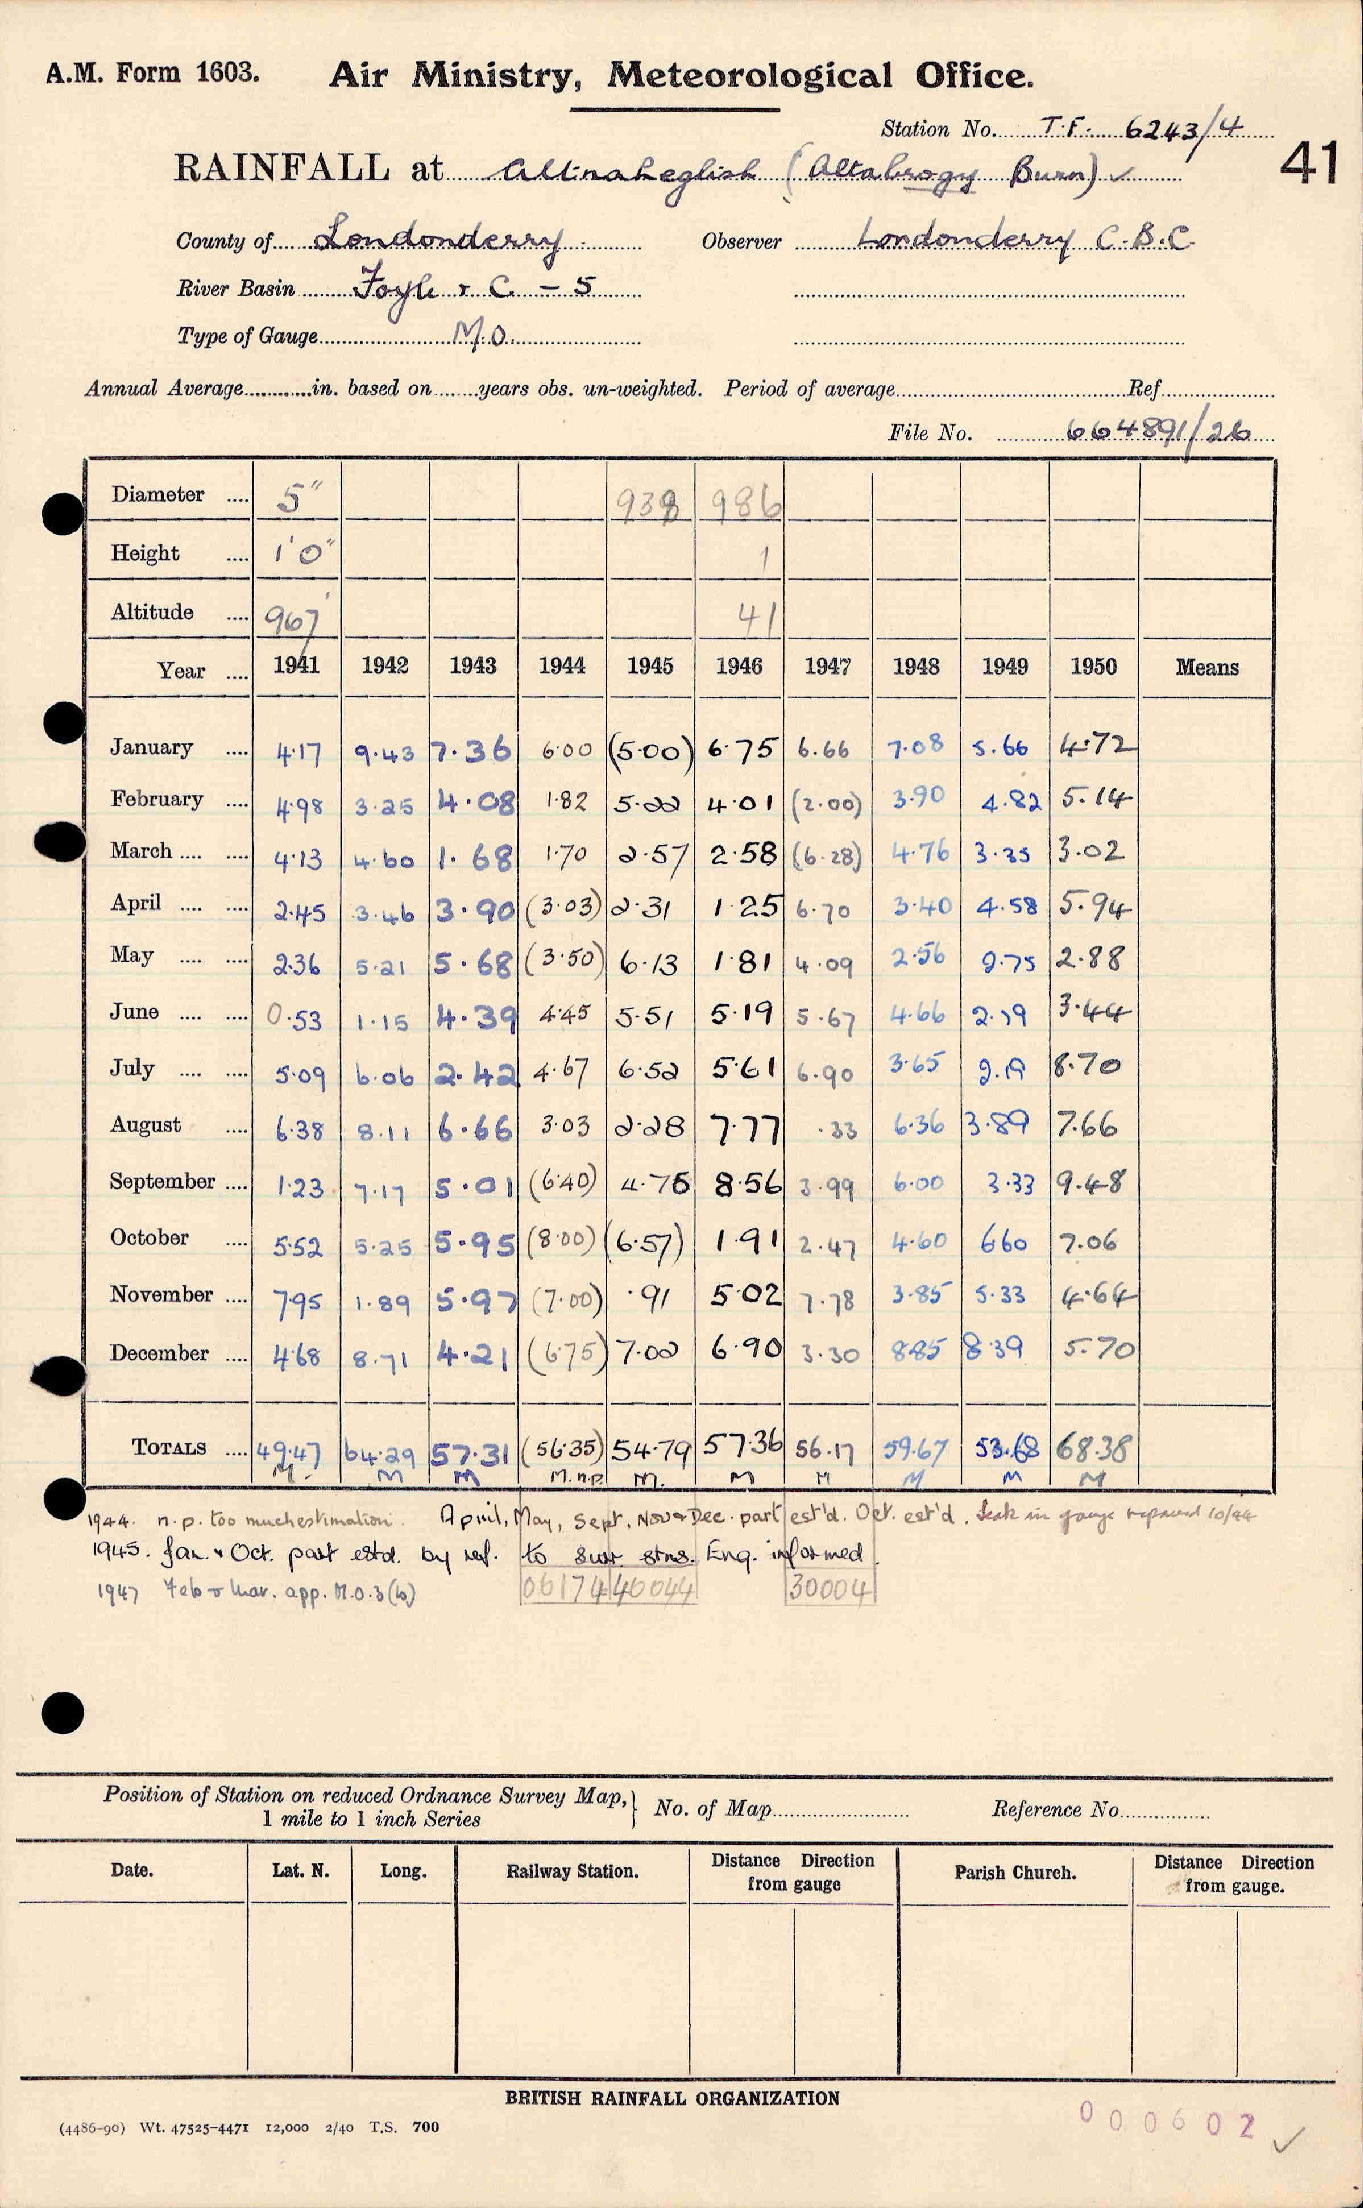 A.M. Form 1603. Air Ministry, Meteorological Office.
Station No. T.F. 6243/4
41
RAINFALL at Altnaheglish (Altabrogy Burn) ✓
County of Londonderry Observer Londonderry C.B.C.
River Basin Foyle & C. – 5
Type of Gauge M.O.
Annual Average in. based on years obs. un-weighted. Period of average Ref
File No. 664891/26
Diameter 5" 938 986
Height 1'0" 1
Altitude 967' 41
Year 1941 1942 1943 1944 1945 1946 1947 1948 1949 1950 Means
January 4.17 9.43 7.36 6.00 (5.00) 6.75 6.66 7.08 5.66 4.72
February 4.98 3.25 4.08 1.82 5.22 4.01 (2.00) 3.90 4.82 5.14
March 4.13 4.60 1.68 1.70 2.57 2.58 (6.28) 4.76 3.35 3.02
April 2.45 3.46 3.90 (3.03) 2.31 1.25 6.70 3.40 4.58 5.94
May 2.36 5.21 5.68 (3.50) 6.13 1.81 4.09 2.56 2.75 2.88
June 0.53 1.15 4.39 4.45 5.51 5.19 5.67 4.66 2.79 3.44
July 5.09 6.06 2.42 4.67 6.52 5.61 6.90 3.65 2.19 8.70
August 6.38 8.11 6.66 3.03 2.28 7.77 .33 6.36 3.89 7.66
September 1.23 7.17 5.01 (6.40) 4.75 8.56 3.99 6.00 3.33 9.48
October 5.52 5.25 5.95 (8.00) (6.57) 1.91 2.47 4.60 6.60 7.06
November 7.95 1.89 5.97 (7.00) .91 5.02 7.78 3.85 5.33 4.64
December 4.68 8.71 4.21 (6.75) 7.02 6.90 3.30 8.85 8.39 5.70
TOTALS 49.47 64.29 57.31 (56.35) 54.79 57.36 56.17 59.67 53.68 68.38
M. M M M. n.p. M. M M M M M
1944. n.p. too much estimation. April, May, Sept, Nov & Dec. part est'd. Oct. est'd. Leak in gauge repaired 10/44
1945. Jan. & Oct. part estd. by ref. to surr. stns. Eng. informed.
1947 Feb & Mar. app. M.O.3(b) 06174 46044 30004
Position of Station on reduced Ordnance Survey Map, 1 mile to 1 inch Series } No. of Map Reference No.
Date. Lat. N. Long. Railway Station. Distance Direction from gauge Parish Church. Distance Direction from gauge.
BRITISH RAINFALL ORGANIZATION
(4486-90) Wt. 47525-4471 12,000 2/40 T.S. 700
000602 ✓